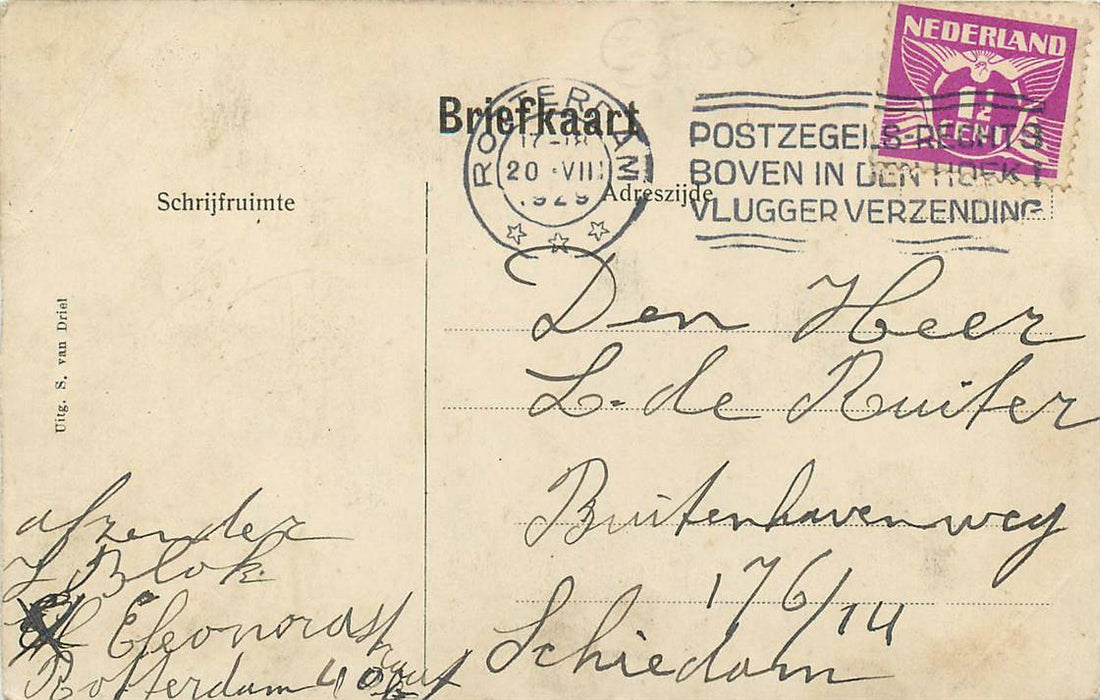 Briefkaart
NEDERLAND
1½
CENT
ROTTERDAM
20 VIII
1929
POSTZEGELS RECHTS
BOVEN IN DEN HOEK!
VLUGGER VERZENDING
Schrijfruimte
Adreszijde
Uitg. S. van Driel
Den Heer
L. de Ruiter
Buitenhavenweg
176/14
Schiedam
afzender
Blok
Eleonorastraat
Rotterdam